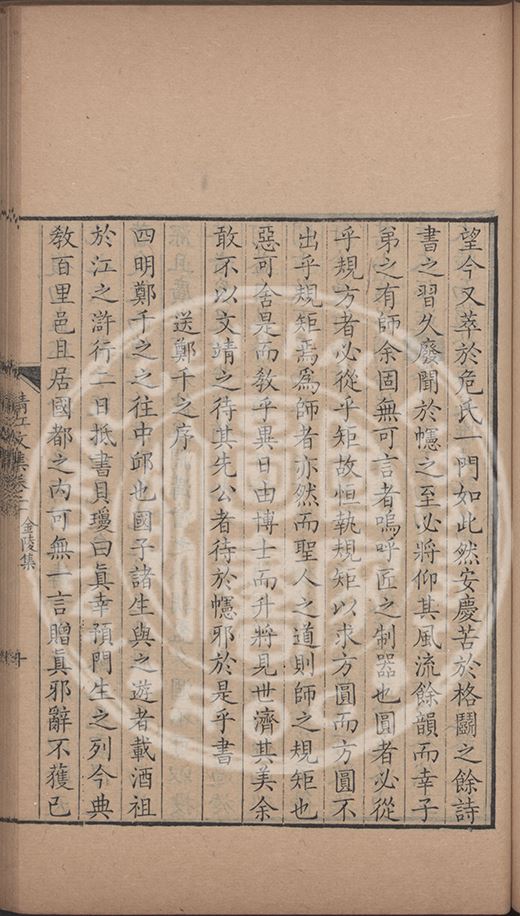 望今又萃於危氏一門如此然安慶苦於格鬬之餘詩
書之習久廢聞於幰之至必將仰其風流餘韻而幸子
弟之有師余固無可言者嗚呼匠之制器也圓者必從
乎規方者必從乎矩故恒執規矩以求方圓而方圓不
出乎規矩焉爲師者亦然而聖人之道則師之規矩也
惡可舍是而敎乎異日由博士而升將見世濟其美余
敢不以文靖之待其先公者待於幰邪於是乎書
送鄭千之序
四明鄭千之之往中邱也國子諸生與之遊者載酒祖
於江之滸行二日抵書貝瓊曰眞幸預門生之列今典
敎百里邑且居國都之內可無一言贈眞邪辭不獲已
清江文集卷二十 金陵集